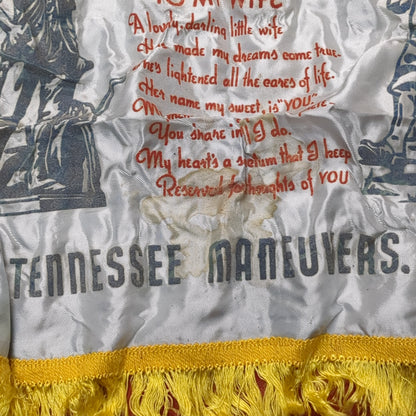 TO MY WIFE
A lovely, darling little wife
Has made my dreams come true-
lightened all the cares of life.
Her name my sweet, is "YOU"
You share in I do.
My heart's a that I keep
Reserved for thoughts of YOU
TENNESSEE MANEUVERS.